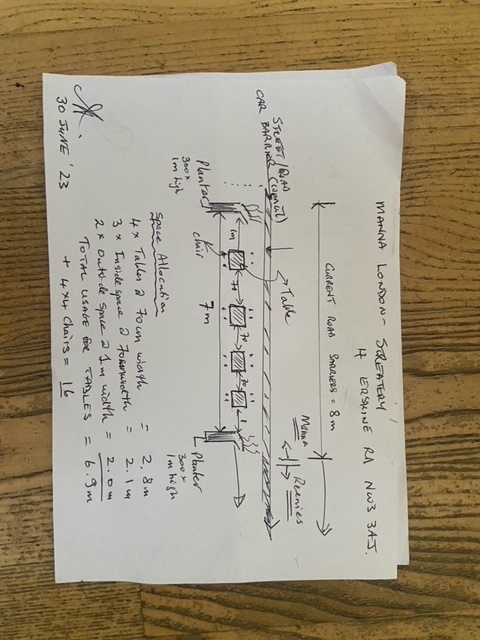 MANNA LONDON - STREATERY
4 ERSKINE RD NW3 3AJ.
CURRENT ROAD BARRIERS = 8m
Manna
Reenies
STREET/ROAD
CAR BARRIER (COUNCIL)
Table
1m
70
70
70
1
Planter
300x
1m high
chair
7m
Planter
300x
1m high
Space Allocation
4 x Tables @ 70cm width = 2.8m
3 x Inside space @ 70cm width = 2.1m
2 x Outside space @ 1m width = 2.0m
TOTAL USAGE FOR TABLES = 6.9m
+ 4x4 Chairs = 16
30 JUNE '23